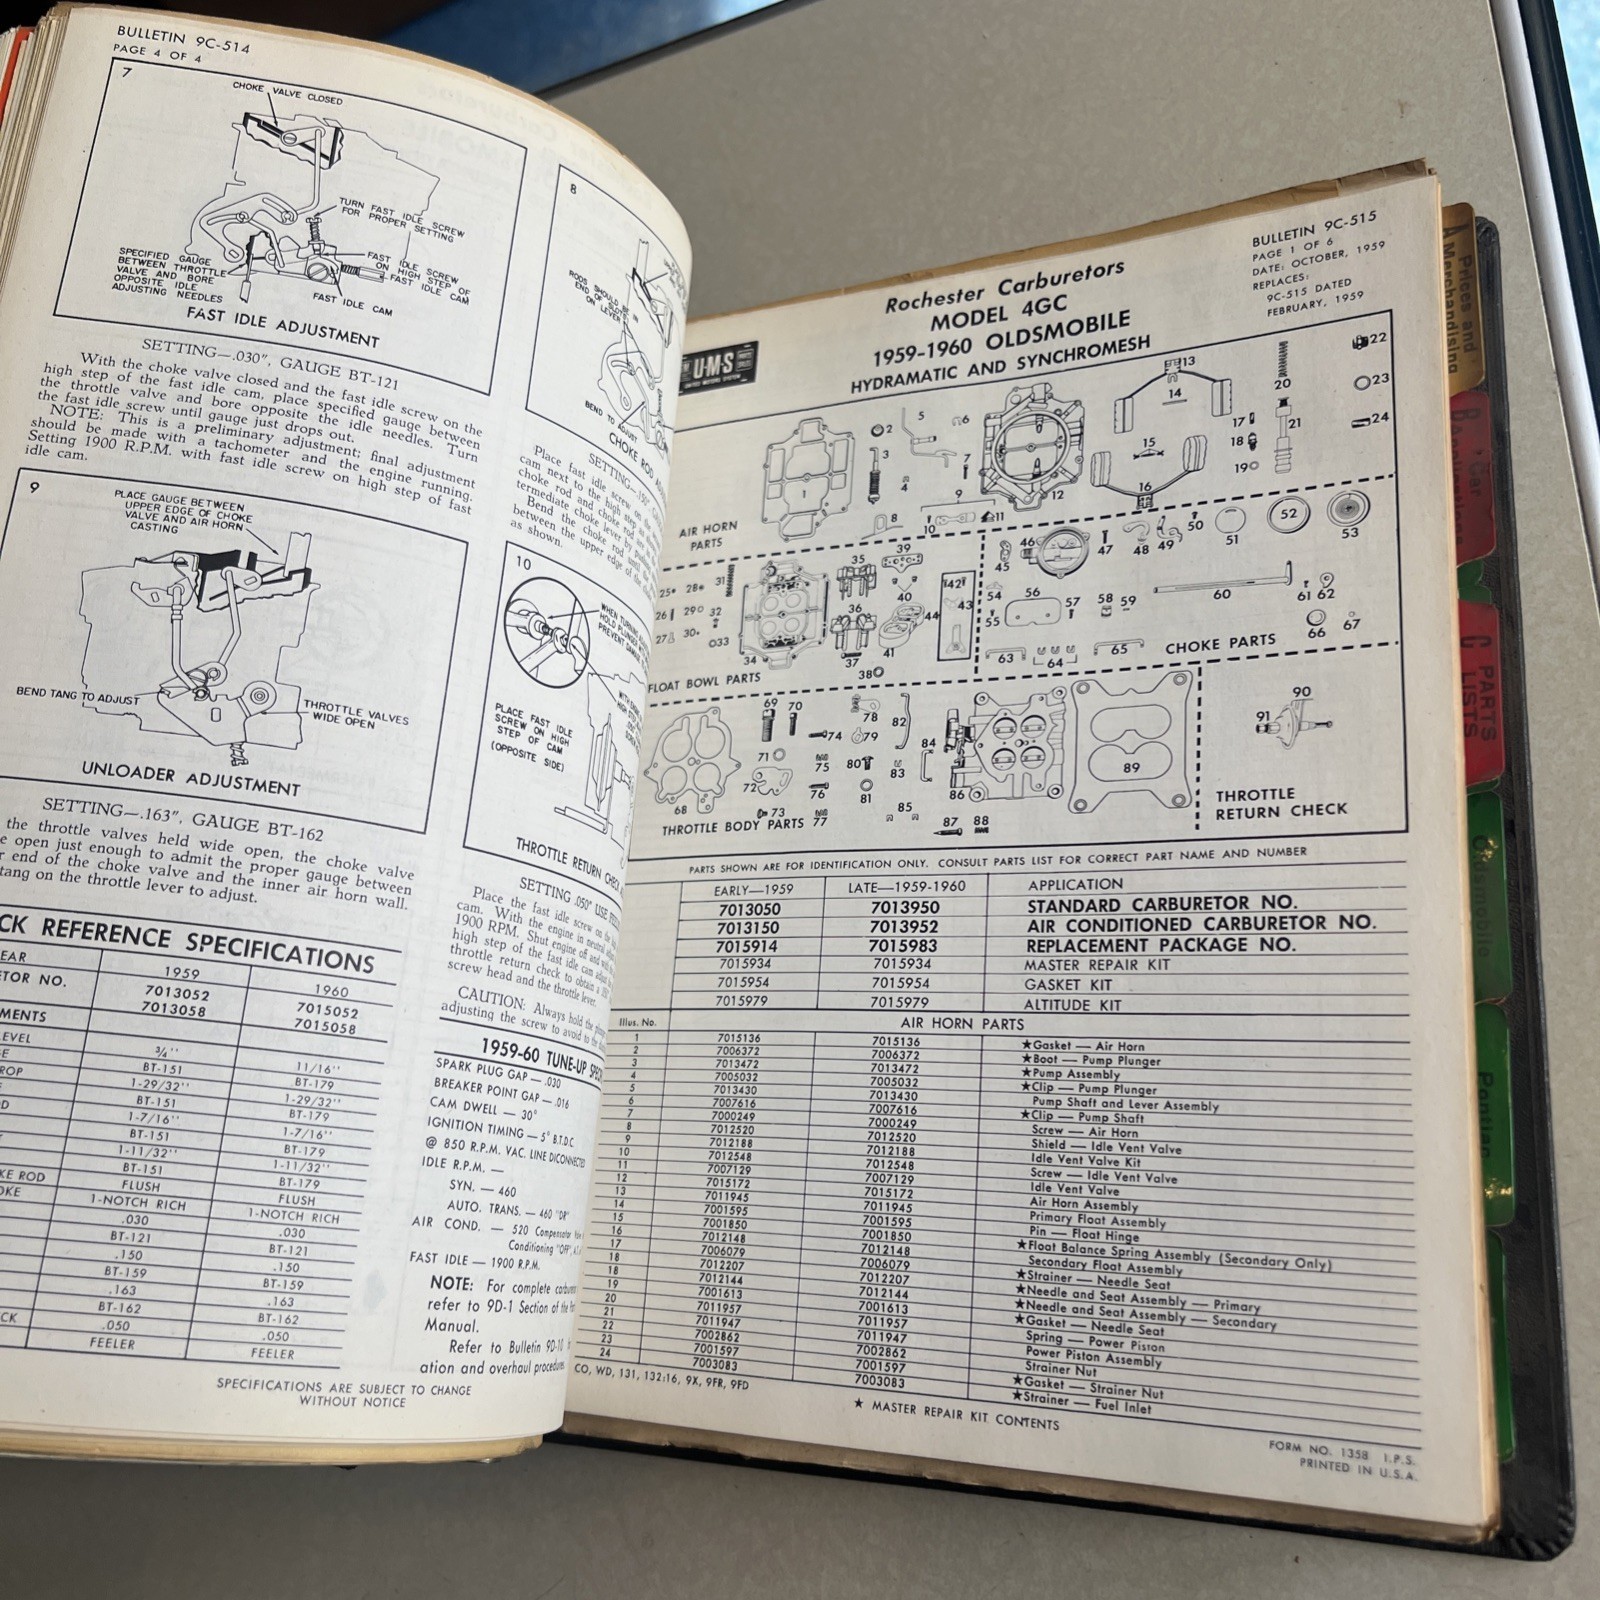 BULLETIN 9C-514
PAGE 4 OF 4
7
CHOKE VALVE CLOSED
TURN FAST IDLE SCREW
FOR PROPER SETTING
SPECIFIED GAUGE
BETWEEN THROTTLE
VALVE AND BORE
OPPOSITE IDLE
ADJUSTING NEEDLES
FAST IDLE SCREW
ON HIGH STEP OF
FAST IDLE CAM
FAST IDLE CAM
FAST IDLE ADJUSTMENT
SETTING—.030", GAUGE BT-121
With the choke valve closed and the fast idle screw on the
high step of the fast idle cam, place specified gauge between
the throttle valve and bore opposite the idle needles. Turn
the fast idle screw until gauge just drops out.
NOTE: This is a preliminary adjustment; final adjustment
should be made with a tachometer and the engine running.
Setting 1900 R.P.M. with fast idle screw on high step of fast
idle cam.
9
PLACE GAUGE BETWEEN
UPPER EDGE OF CHOKE
VALVE AND AIR HORN
CASTING
BEND TANG TO ADJUST
THROTTLE VALVES
WIDE OPEN
UNLOADER ADJUSTMENT
SETTING—.163", GAUGE BT-162
the throttle valves held wide open, the choke valve
open just enough to admit the proper gauge between
end of the choke valve and the inner air horn wall.
tang on the throttle lever to adjust.
CK REFERENCE SPECIFICATIONS
EAR 1959 1960
TOR NO. 7013052 7015052
7013058 7015058
MENTS
LEVEL 3/4" 11/16"
BT-151 BT-179
ROP 1-29/32" 1-29/32"
BT-151 BT-179
1-7/16" 1-7/16"
BT-151 BT-179
1-11/32" 1-11/32"
BT-151 BT-179
KE ROD FLUSH FLUSH
OKE 1-NOTCH RICH 1-NOTCH RICH
.030 .030
BT-121 BT-121
.150 .150
BT-159 BT-159
.163 .163
BT-162 BT-162
CK .050 .050
FEELER FEELER
SPECIFICATIONS ARE SUBJECT TO CHANGE
WITHOUT NOTICE
8
RODS SHOULD BE IN
END OF SLOTS
ON LEVER
BEND TO ADJUST
CHOKE ROD
SETTING—.150"
Place fast idle screw on the
cam next to the high step
choke rod and choke rod
termediate choke lever by
Bend the choke rod until the
between the upper edge of the
as shown.
10
WHEN TURNING
HOLD PLUNGER
PREVENT DAMAGE
PLACE FAST IDLE
SCREW ON HIGH
STEP OF CAM
(OPPOSITE SIDE)
THROTTLE RETURN CHECK
SETTING .050" USE FEELER
Place the fast idle screw on the
cam. With the engine in neutral
1900 RPM. Shut engine off and with
high step of the fast idle cam adjust
throttle return check to obtain a
screw head and the throttle lever.
CAUTION: Always hold the
adjusting the screw to avoid
1959-60 TUNE-UP
SPARK PLUG GAP — .030
BREAKER POINT GAP — .016
CAM DWELL — 30°
IGNITION TIMING — 5° B.T.D.C
@ 850 R.P.M. VAC. LINE DICONNECTED
IDLE R.P.M. —
SYN. — 460
AUTO. TRANS. — 460 "DR"
AIR COND. — 520 Compensator
Conditioning "OFF"
FAST IDLE — 1900 R.P.M.
NOTE: For complete
refer to 9D-1 Section of the
Manual.
Refer to Bulletin 9D-10
ation and overhaul procedures
BULLETIN 9C-515
PAGE 1 OF 6
DATE: OCTOBER, 1959
REPLACES:
9C-515 DATED
FEBRUARY, 1959
Rochester Carburetors
MODEL 4GC
1959-1960 OLDSMOBILE
HYDRAMATIC AND SYNCHROMESH
U·M·S
AIR HORN
PARTS
1 2 3 4 5 6 7 8 9 10 11 12 13 14 15 16 17 18 19 20 21 22 23 24
FLOAT BOWL PARTS
25 26 27 28 29 30 31 32 33 34 35 36 37 38 39 40 41 42 43 44
CHOKE PARTS
45 46 47 48 49 50 51 52 53 54 55 56 57 58 59 60 61 62 63 64 65 66 67
THROTTLE BODY PARTS
68 69 70 71 72 73 74 75 76 77 78 79 80 81 82 83 84 85 86 87 88 89
90 91
THROTTLE
RETURN CHECK
PARTS SHOWN ARE FOR IDENTIFICATION ONLY. CONSULT PARTS LIST FOR CORRECT PART NAME AND NUMBER
EARLY—1959 LATE—1959-1960 APPLICATION
7013050 7013950 STANDARD CARBURETOR NO.
7013150 7013952 AIR CONDITIONED CARBURETOR NO.
7015914 7015983 REPLACEMENT PACKAGE NO.
7015934 7015934 MASTER REPAIR KIT
7015954 7015954 GASKET KIT
7015979 7015979 ALTITUDE KIT
Illus. No. AIR HORN PARTS
1 7015136 7015136 ★Gasket — Air Horn
2 7006372 7006372 ★Boot — Pump Plunger
3 7013472 7013472 ★Pump Assembly
4 7005032 7005032 ★Clip — Pump Plunger
5 7013430 7013430 Pump Shaft and Lever Assembly
6 7007616 7007616 ★Clip — Pump Shaft
7 7000249 7000249 Screw — Air Horn
8 7012520 7012520 Shield — Idle Vent Valve
9 7012188 7012188 Idle Vent Valve Kit
10 7012548 7012548 Screw — Idle Vent Valve
11 7007129 7007129 Idle Vent Valve
12 7015172 7015172 Air Horn Assembly
13 7011945 7011945 Primary Float Assembly
14 7001595 7001595 Pin — Float Hinge
15 7001850 7001850 ★Float Balance Spring Assembly (Secondary Only)
16 7012148 7012148 Secondary Float Assembly
17 7006079 7006079 ★Strainer — Needle Seat
18 7012207 7012207 ★Needle and Seat Assembly — Primary
18 7012144 7012144 ★Needle and Seat Assembly — Secondary
19 7001613 7001613 ★Gasket — Needle Seat
20 7011957 7011957 Spring — Power Piston
21 7011947 7011947 Power Piston Assembly
22 7002862 7002862 Strainer Nut
23 7001597 7001597 ★Gasket — Strainer Nut
24 7003083 7003083 ★Strainer — Fuel Inlet
CO, WD, 131, 132:16, 9X, 9FR, 9FD
★ MASTER REPAIR KIT CONTENTS
FORM NO. 1358 I.P.S.
PRINTED IN U.S.A.
A Prices and
Merchandising
B Car
C PARTS
LISTS
Oldsmobile
Pontiac